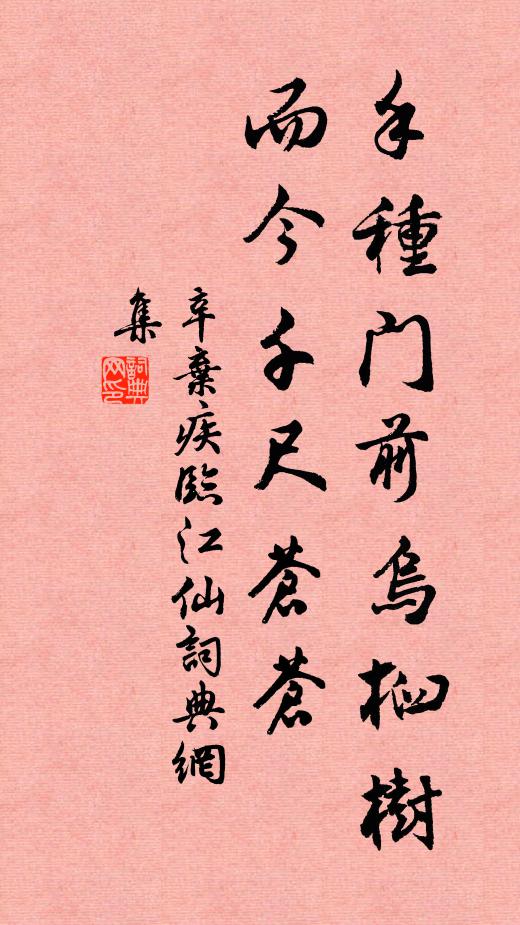 手種門前烏桕樹
而今千尺蒼蒼
辛棄疾臨江仙詞典網
集
詞典網印